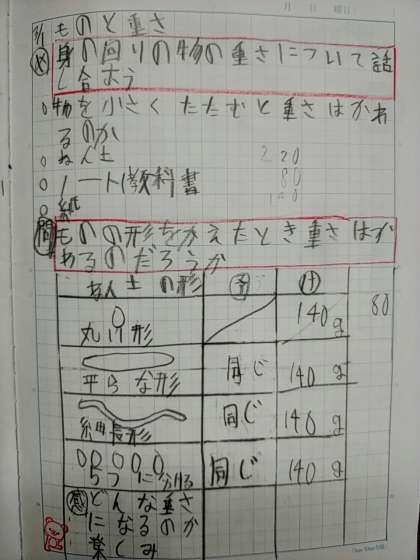 月 日 曜日
ものと重さ
め 身の回りの物の重さについて話
し合おう
○物を小さくたたむと重さはかわ
るのか
○ねん土 220
○ノート/教科書 80
○紙 140
問 ものの形をかえたとき重さはか
わるのだろうか
ねん土の形 予 け
丸い形 140g 80
平らな形 同じ 140g
細長形 同じ 140g
5つに分ける 同じ 140g
感 どんな重さ
になるのか
楽しみ